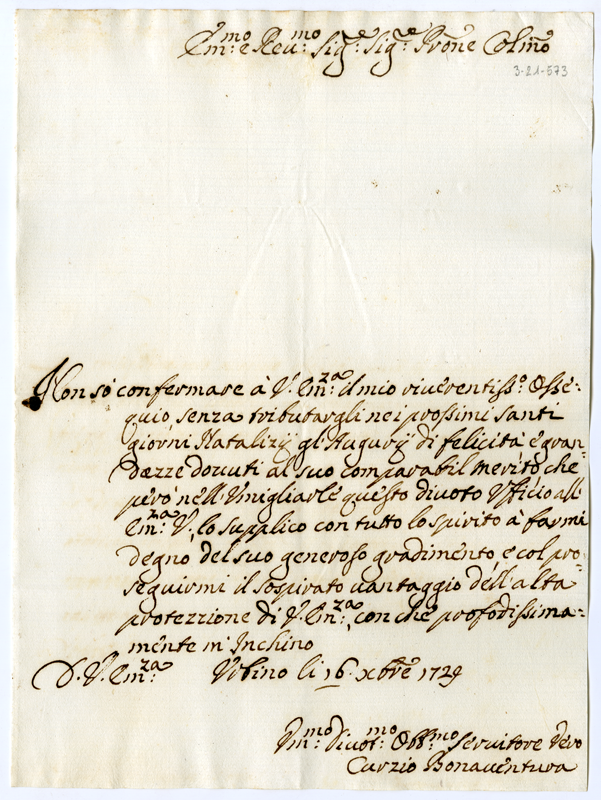 Em:mo e Reu:mo Sig:re Sig:re Prone Colmo
3-21-573
Non só confermare à V. Em:za il mio riuerentiss:o Osse=
quio, senza tributargli nei prossimi Santi
giorni Natalizÿ gl'Augurÿ di felicità e gran=
dezze douuti al suo comparabil merito che
però nell'Vmigliarle questo diuoto Vfficio all'
Em:za V. lo supplico con tutto lo spirito à farmi
degno del suo generoso gradimento, e col pro=
seguirmi il sospirato uantaggio dell'alta
protezzione di V. Em:za, con che profodissima=
mente m'Inchino
D. V. Em:za Vrbino li 16. xbre 1729
Vm:mo Diuot:mo Obb:mo Seruitore Vero
Curzio Bonauentura